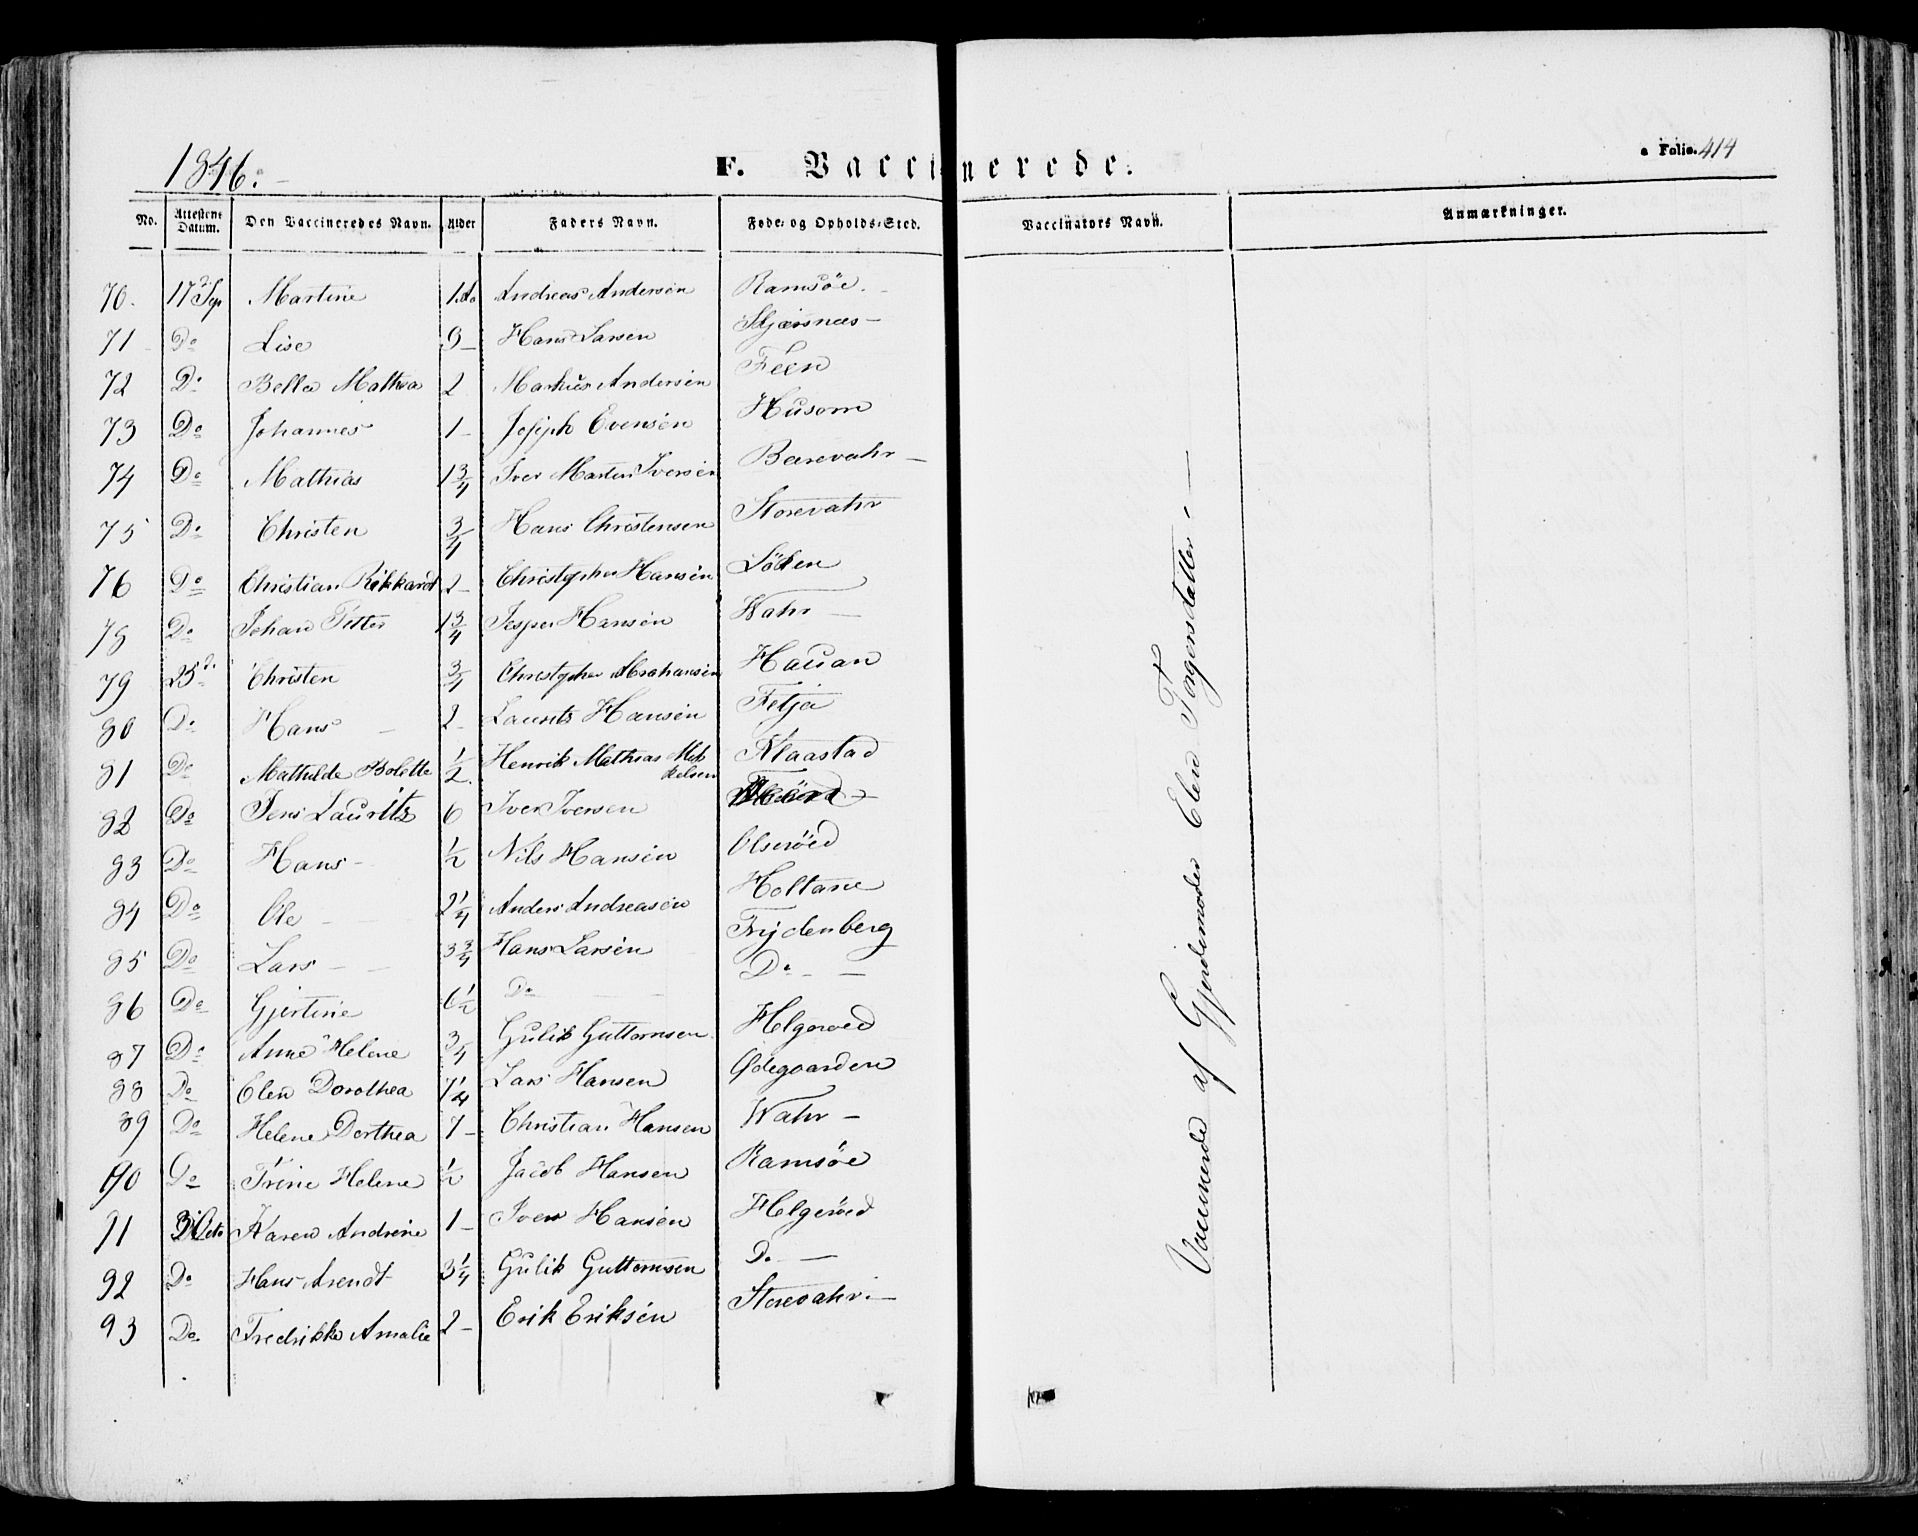 1846.
F. Vaccinerede.
a Folio. 414
No. Attestens Datum. Den Vaccineredes Navn. Alder Faders Navn. Føde- og Opholds-Sted. Vaccinators Navn. Anmærkninger.
70. 17 Sep Martine 1 Andreas Andersen Ramsöe.
71 Do Lise 9 Hans Larsen
72 Do Bella Mathea 2 Markus Andersen Feen
73 Do Johannes 1 Joseph Evensen Husom
74 Do Mathias 1 3/4 Iver Marten Iversen Barevahr
75 Do Christen 3/4 Hans Christensen Storevahr
76 Do Christian Rikkardt 2 Christopher Hansen
78 Do Johan Petter 1 3/4 Jesper Hansen Wahr
79 25d Christen 3/4 Christopher Abrahamsen Hauan
80 Do Hans 2 Laurits Hansen Fetja
81 Do Mathilde Bolette 1/2. Henrik Mathias Mikkelsen Klaastad
82 Do Jens Lauritz 6 Iver Iversen
83 Do Hans 1/2 Nils Hansen Olseröed
84 Do Ole 2 1/4 Anders Andreasen Holtane
85 Do Lars 3 3/4 Hans Larsen Frydenberg
86 Do Gjertine 6 1/2 Do Do
87 Do Anne Helene 3/4 Gulik Guttormsen Helgeroed
88 Do Elen Dorothea 7 1/4 Lars Hansen Ødegaarden
89 Do Helene Dorthea 7 Christian Hansen Wahr
90 Do Trine Helene 1/2 Jacob Hansen Ramsöe
91 3 Octo Karen Andrine 1 Iver Hansen Helgeröed
92 Do Hans Arendt 3 1/4 Gulik Guttormsen Do
93 Do Fredrikke Amalie 2 Erik Eriksen Storevahr.
Vaccinerede af Gjordemoder Elen Torgersdatter.